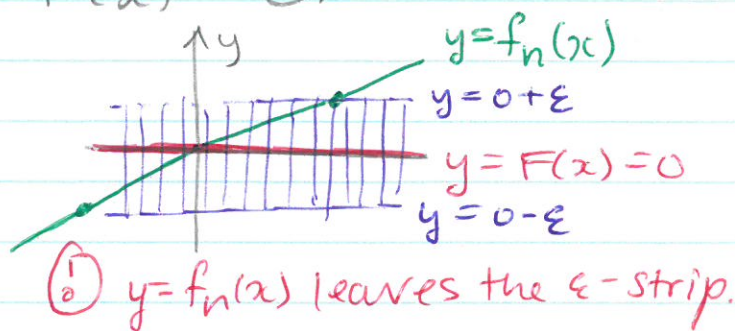 y
y=fn(x)
y=0+ε
y=F(x)=0
y=0-ε
! y=fn(x) leaves the ε-strip.